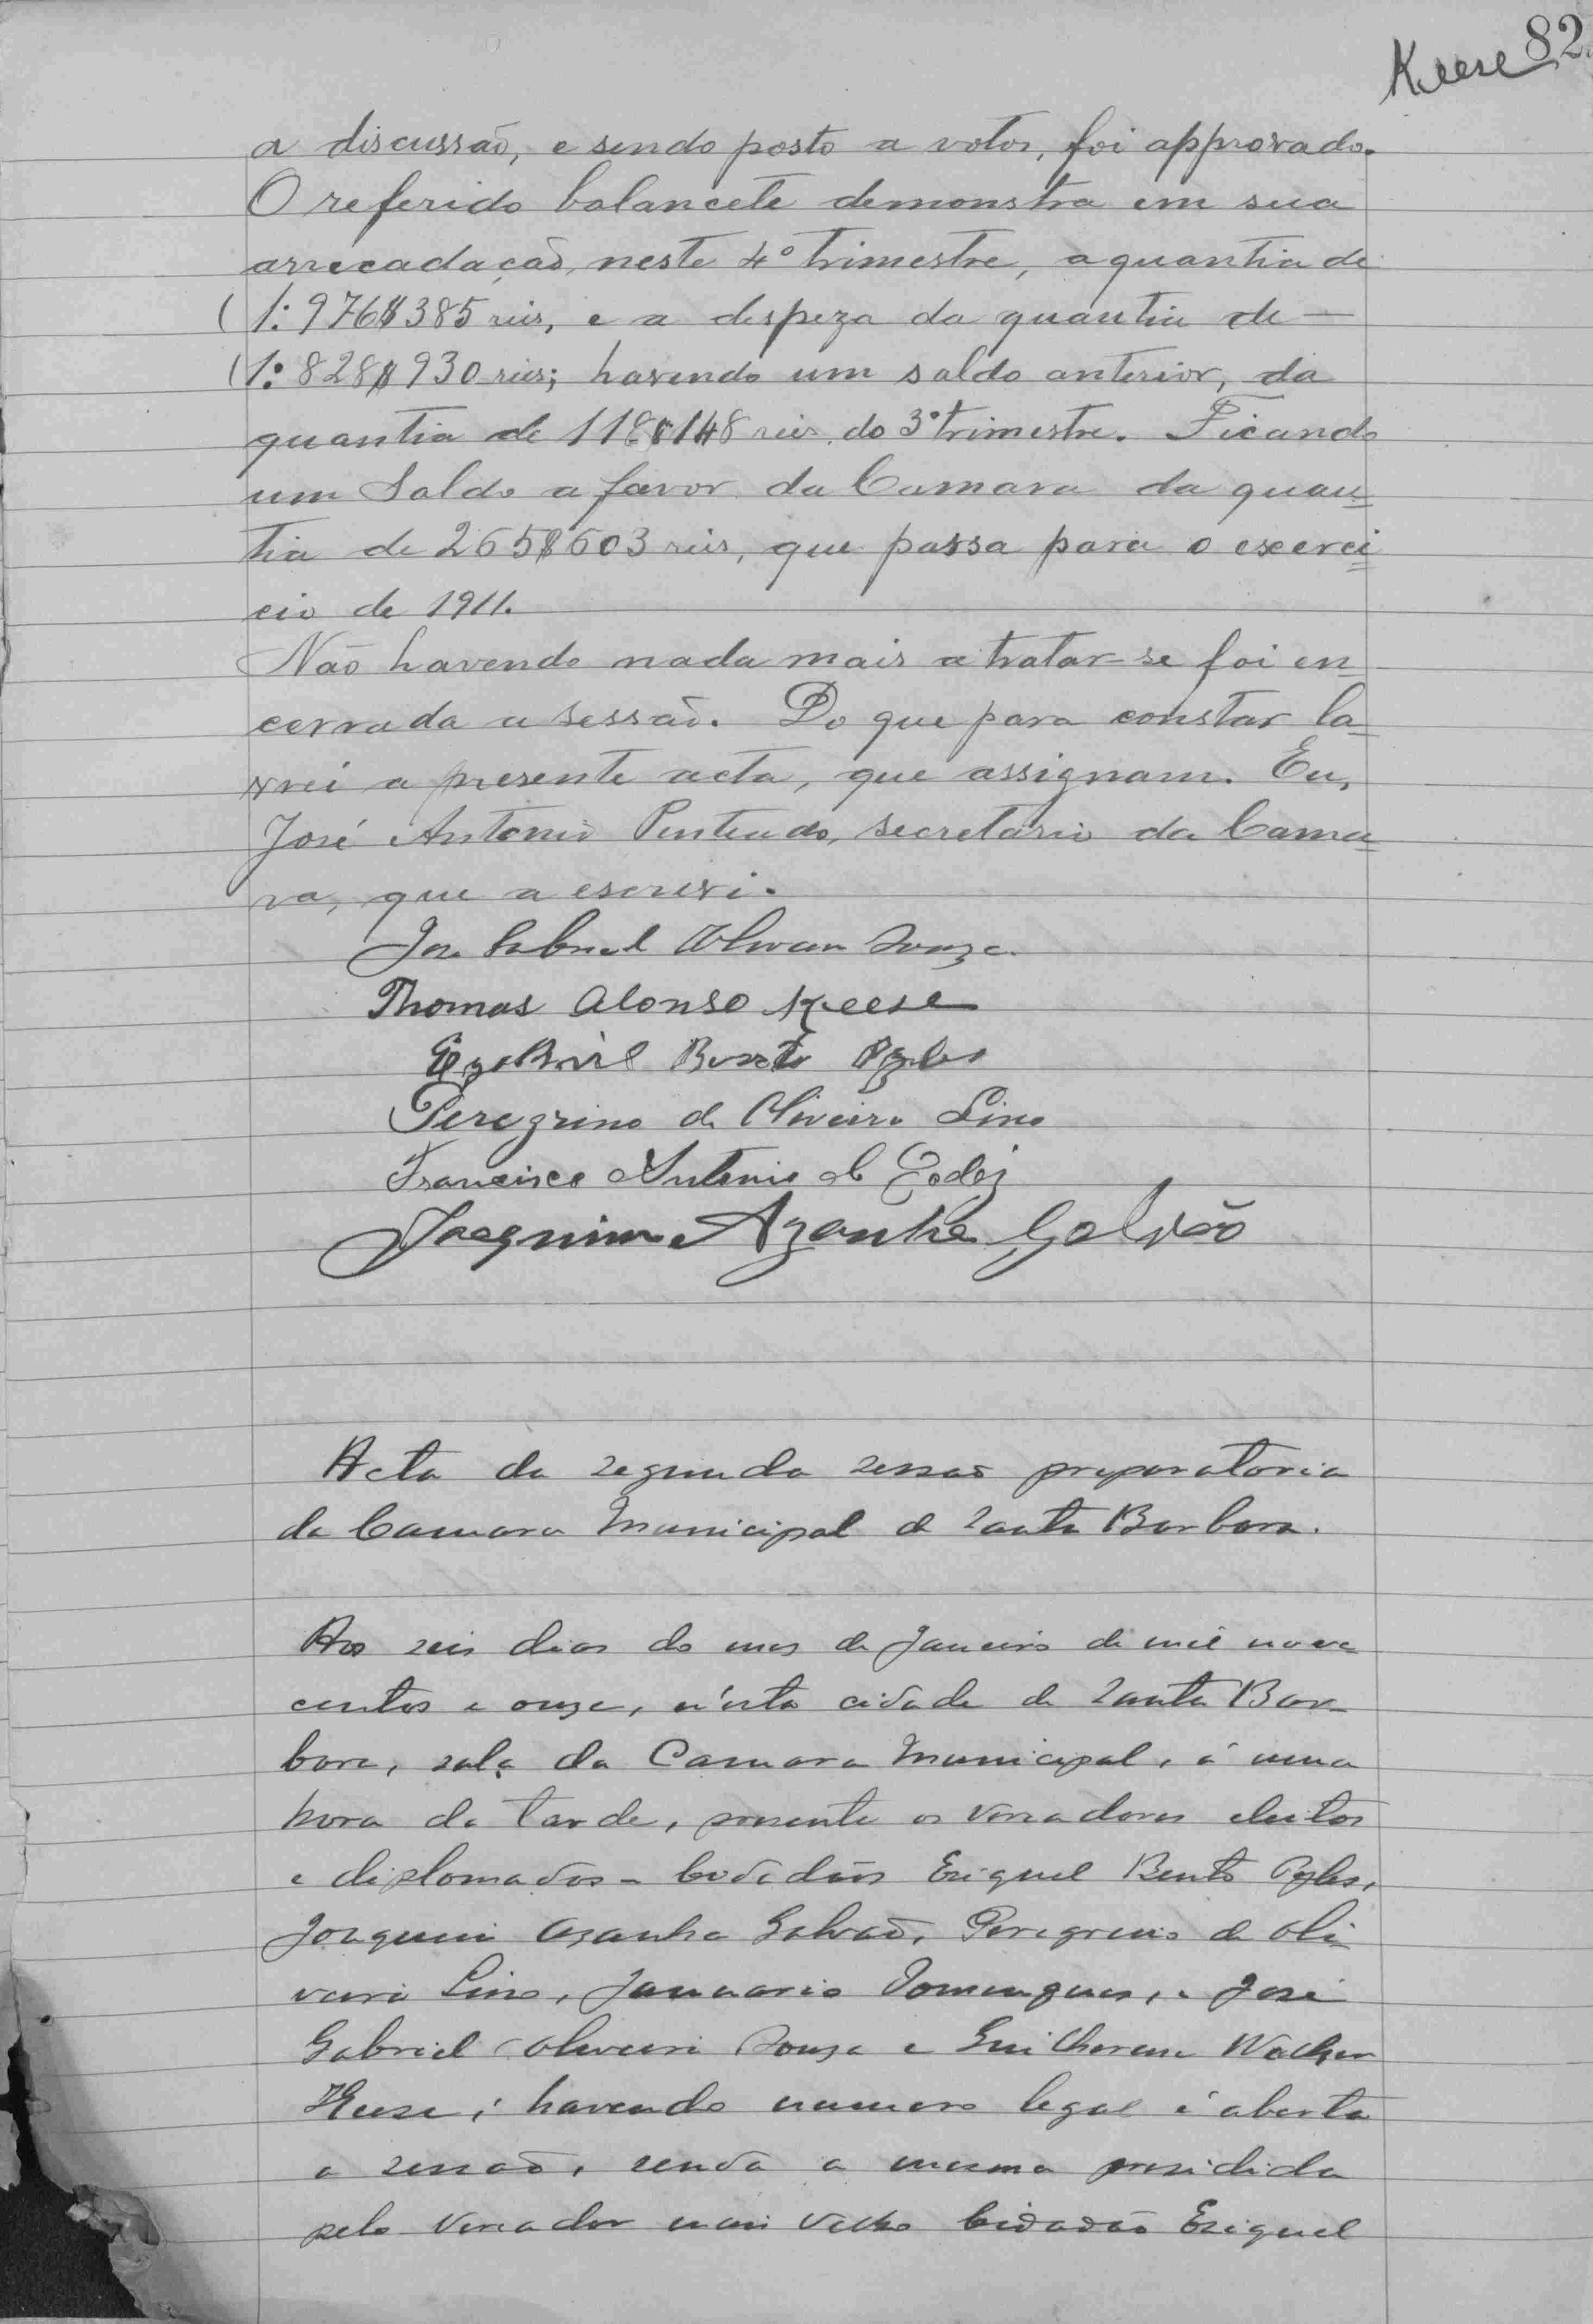 Keese 82
a discussão, e sendo posto a votos, foi approvado.
O referido balancete demonstra em sua
arrecadação, neste 4º trimestre, a quantia de
1:976$385 reis, e a despeza da quantia de —
1:828$930 reis; havendo um saldo anterior, da
quantia de 118$148 reis, do 3º trimestre. Ficando
um Saldo a favor da Camara da quan-
tia de 265$603 reis, que passa para o exerci-
cio de 1911.
Não havendo nada mais a tratar-se foi en-
cerrada a sessão. Do que para constar la-
vrei a presente acta, que assignam. Eu,
José Antonio Penteado, secretario da Cama-
ra, que a escrevi.
José Gabriel Oliveira Souza
Thomas Alonso Keese
Ezequiel Bento
Peregrino de Oliveira Lino
Francisco Antonio de Godoy
Joaquim Azanha Galvão
Acta da segunda sessão preparatoria
da Camara Municipal de Santa Barbara.
Aos seis dias do mes de Janeiro de mil nove
centos e onze, n'esta cidade de Santa Bar-
bara, sala da Camara Municipal, á uma
hora da tarde, presente os vereadores eleitos
e diplomados - Cidadãos Eziquel Bento
Joaquim Azanha Galvão, Peregrino de Oli-
veira Lino, Januario Domingues, e José
Gabriel Oliveira Souza e Guilherme
Keese; havendo numero legal é aberta
a sessão, sendo a mesma presidida
pelo Vereador mais velho Cidadão Eziquel